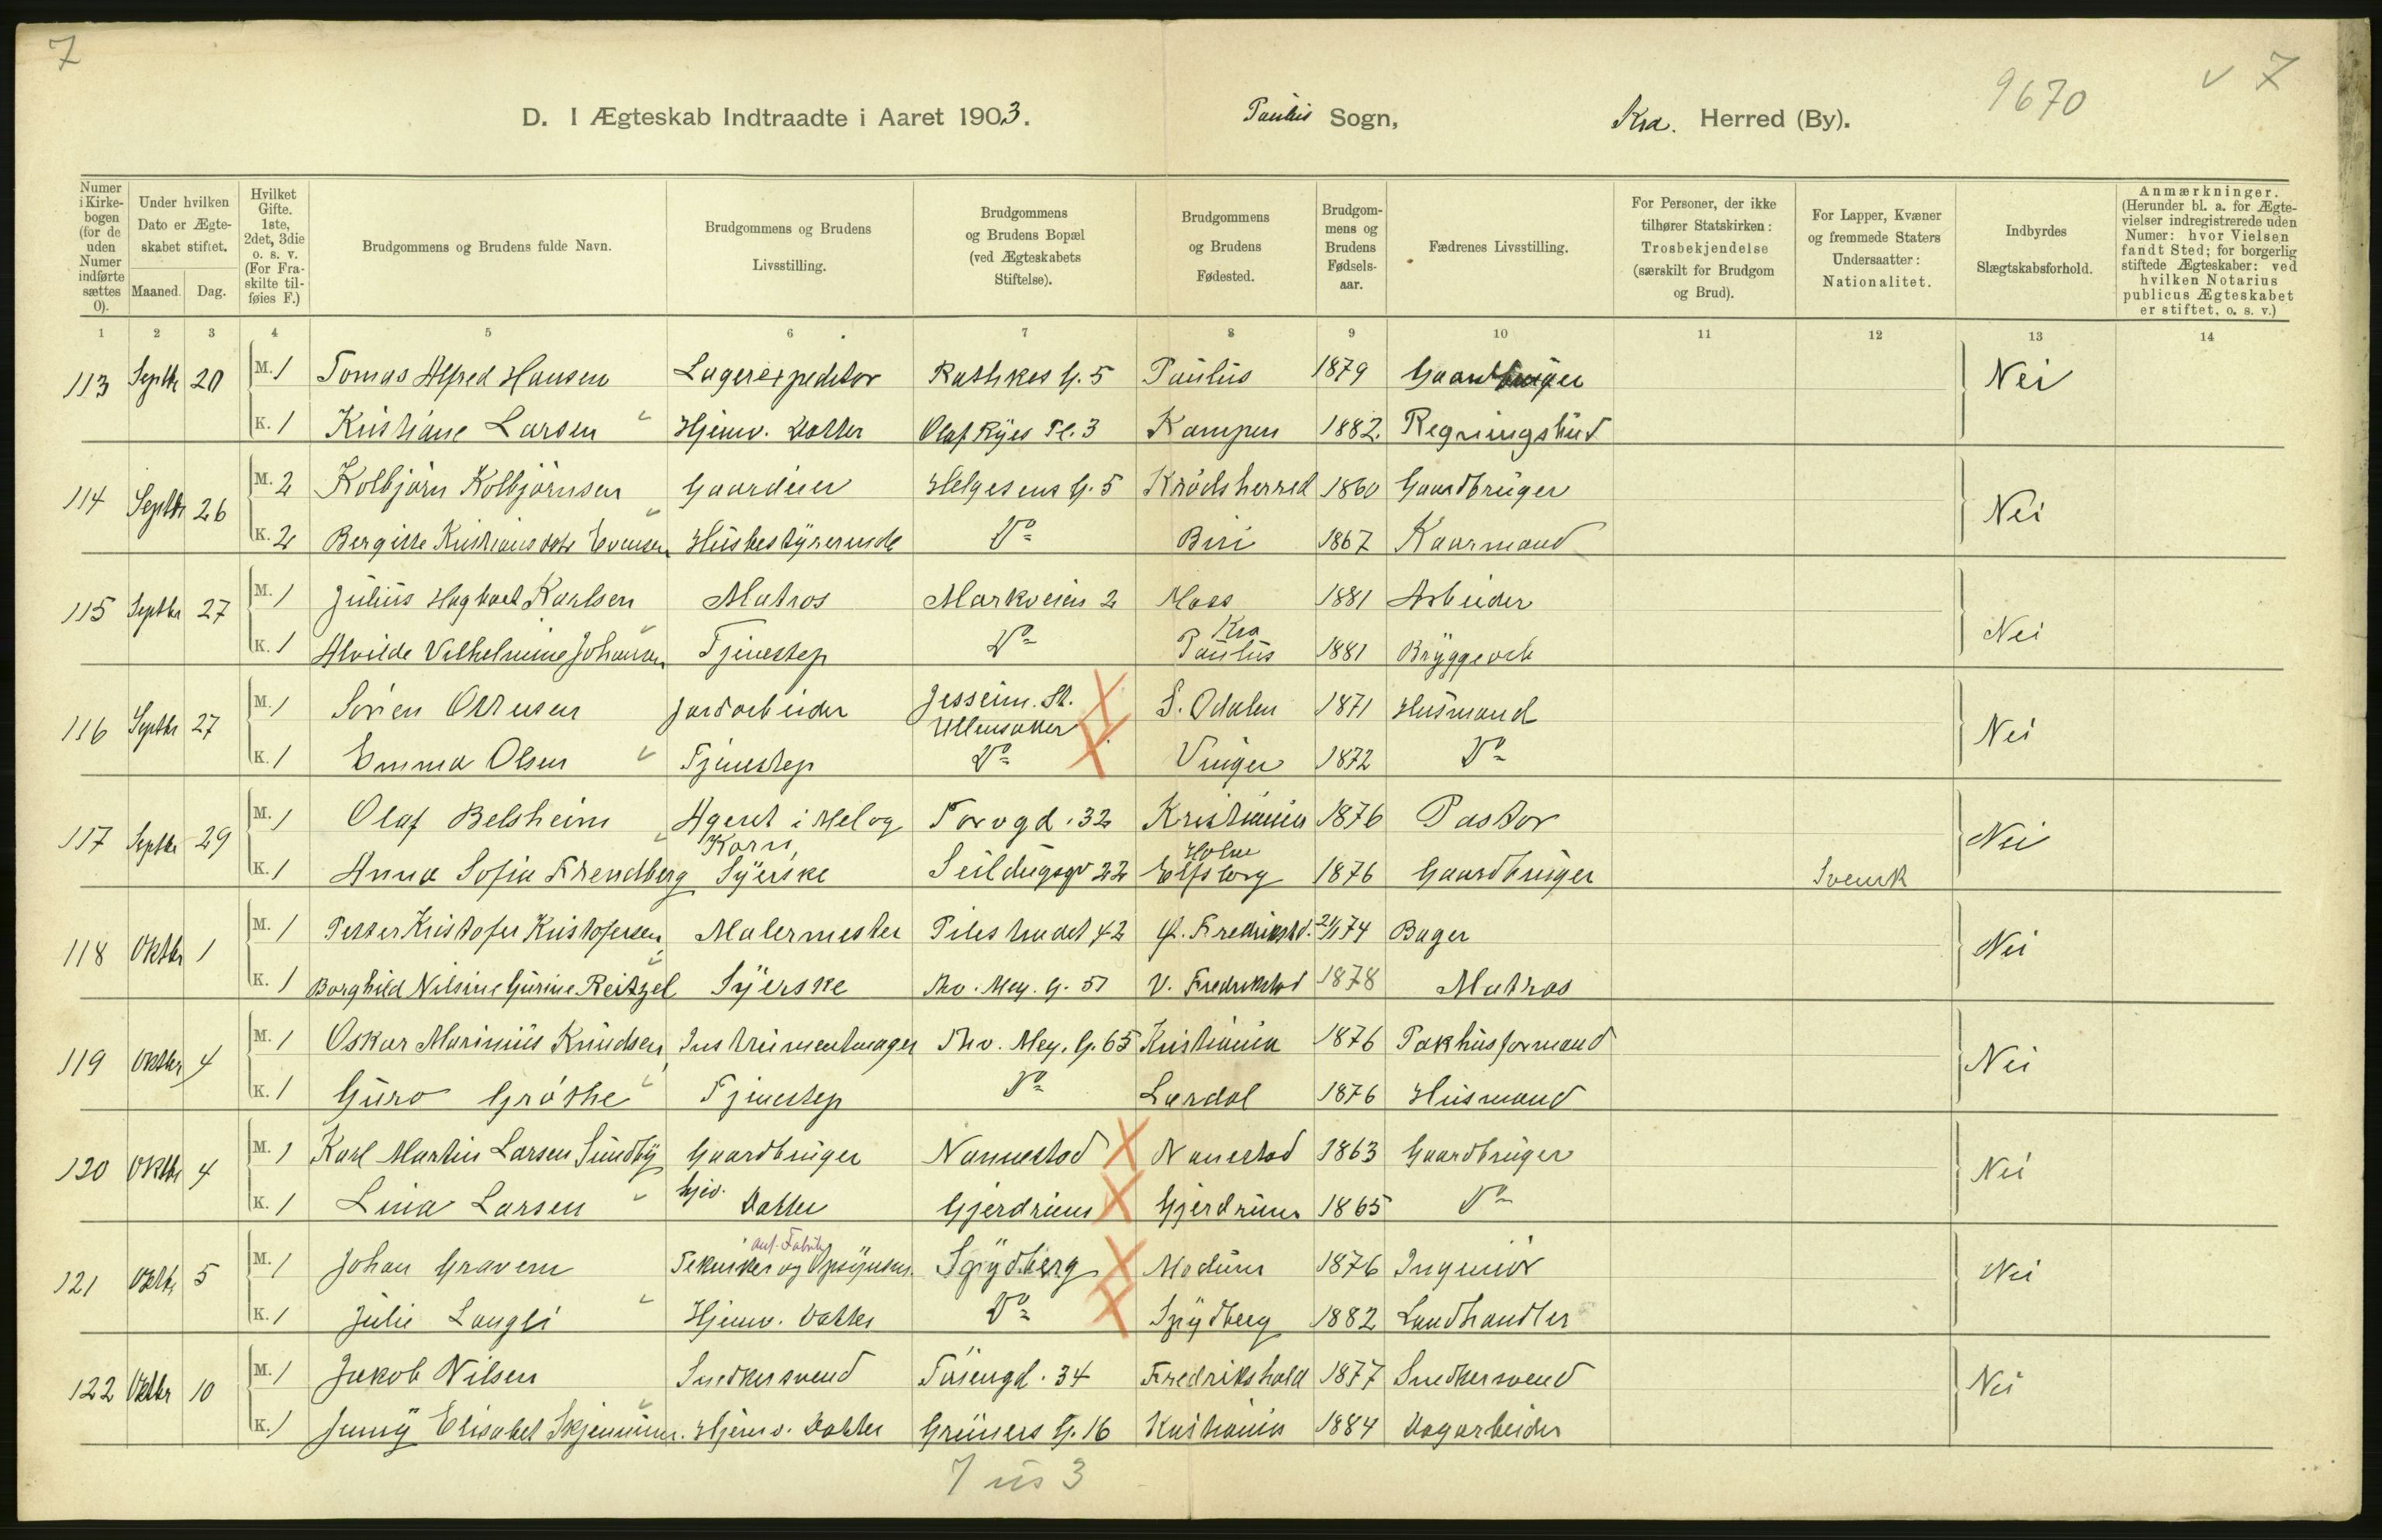 7
9670
v 7
D. I Ægteskab Indtraadte i Aaret 1903. Paulus Sogn, Kra. Herred (By).
Numer i Kirkebogen (for de uden Numer indførte sættes 0).
Under hvilken Dato er Ægteskabet stiftet.
Maaned. Dag.
Hvilket Gifte. 1ste, 2det, 3die o. s. v. (For Fraskilte tilføies F.)
Brudgommens og Brudens fulde Navn.
Brudgommens og Brudens Livsstilling.
Brudgommens og Brudens Bopæl (ved Ægteskabets Stiftelse).
Brudgommens og Brudens Fødested.
Brudgommens og Brudens Fødselsaar.
Fædrenes Livsstilling.
For Personer, der ikke tilhører Statskirken: Trosbekjendelse (særskilt for Brudgom og Brud).
For Lapper, Kvæner og fremmede Staters Undersaatter: Nationalitet.
Indbyrdes Slægtskabsforhold.
Anmærkninger. (Herunder bl. a. for Ægtevielser indregistrerede uden Numer: hvor Vielsen fandt Sted; for borgerlig stiftede Ægteskaber: ved hvilken Notarius publicus Ægteskabet er stiftet, o. s. v.)
1 2 3 4 5 6 7 8 9 10 11 12 13 14
113 Septbr 20 M. 1 Tomas Alfred Hansen Lagerexpeditør Rathkes G. 5 Paulus 1879 Gaardbruger Nei
K. 1 Kristiane Larsen Hjemv. Datter Olaf Ryes Pl. 3 Kampen 1882 Regningsbud
114 Septbr 26 M. 2 Kolbjørn Kolbjørnsen Gaardeier Helgesens G. 5 Krødsherred 1860 Gaardbruger Nei
K. 2 Bergitte Kristiansdatr Evensen Husbestyrerinde Do Biri 1867 Kaarmand
115 Septbr 27 M. 1 Julius Hagbart Karlsen Matros Markveien 2 Moss 1881 Arbeider Nei
K. 1 Alvilde Vilhelmine Johansen Tjenestep Do Kra Paulus 1881 Bryggearb
116 Septbr 27 M. 1 Søren Ottesen Jordarbeider Jesseim St. Ullensaker S. Odalen 1871 Husmand Nei
K. 1 Emma Olsen Tjenestep Do Vinger 1872 Do
117 Septbr 29 M. 1 Olaf Belsheim Agent i Mel og Korn Torvgd. 32 Kristiania 1876 Pastor Nei
K. 1 Anna Sofia Frendberg Syerske Seildugsgd 22 Elfsborg 1876 Gaardbruger Svensk
118 Oktbr 1 M. 1 Petter Kristofer Kristofersen Malermester Pilestradet 42 Gl. Fredrikstd. 21/1 74 Bager Nei
K. 1 Borghild Nilsine Gurine Reitzel Syerske Thv. Mey. G. 51 V. Fredrikstad 1878 Matros
119 Oktbr 4 M. 1 Oskar Marinius Knudsen Instrumentmager Thv. Mey. G. 65 Kristiania 1876 Pakhusformand Nei
K. 1 Guro Grøthe Tjenestep Do Lærdal 1876 Husmand
120 Oktbr 4 M. 1 Karl Martin Larsen Sundby Gaardbruger Nannestad Nanestad 1863 Gaardbruger Nei
K. 1 Lina Larsen Hjv. Datter Gjerdrum Gjerdrum 1865 Do
121 Oktbr 5 M. 1 Johan Gravem Tekniker og Spydberg Modum 1876 Ingeniør Nei
K. 1 Julie Langli Hjemv. Datter Do Spydberg 1882 Landhandler
122 Oktbr 10 M. 1 Jakob Nilsen Snedkersvend Tøiengd. 34 Fredrikshald 1877 Snedkersvend Nei
K. 1 Jenny Elisabet Hjemv. Datter Grüners G. 16 Kristiania 1884 Dagarbeider
7 us 3